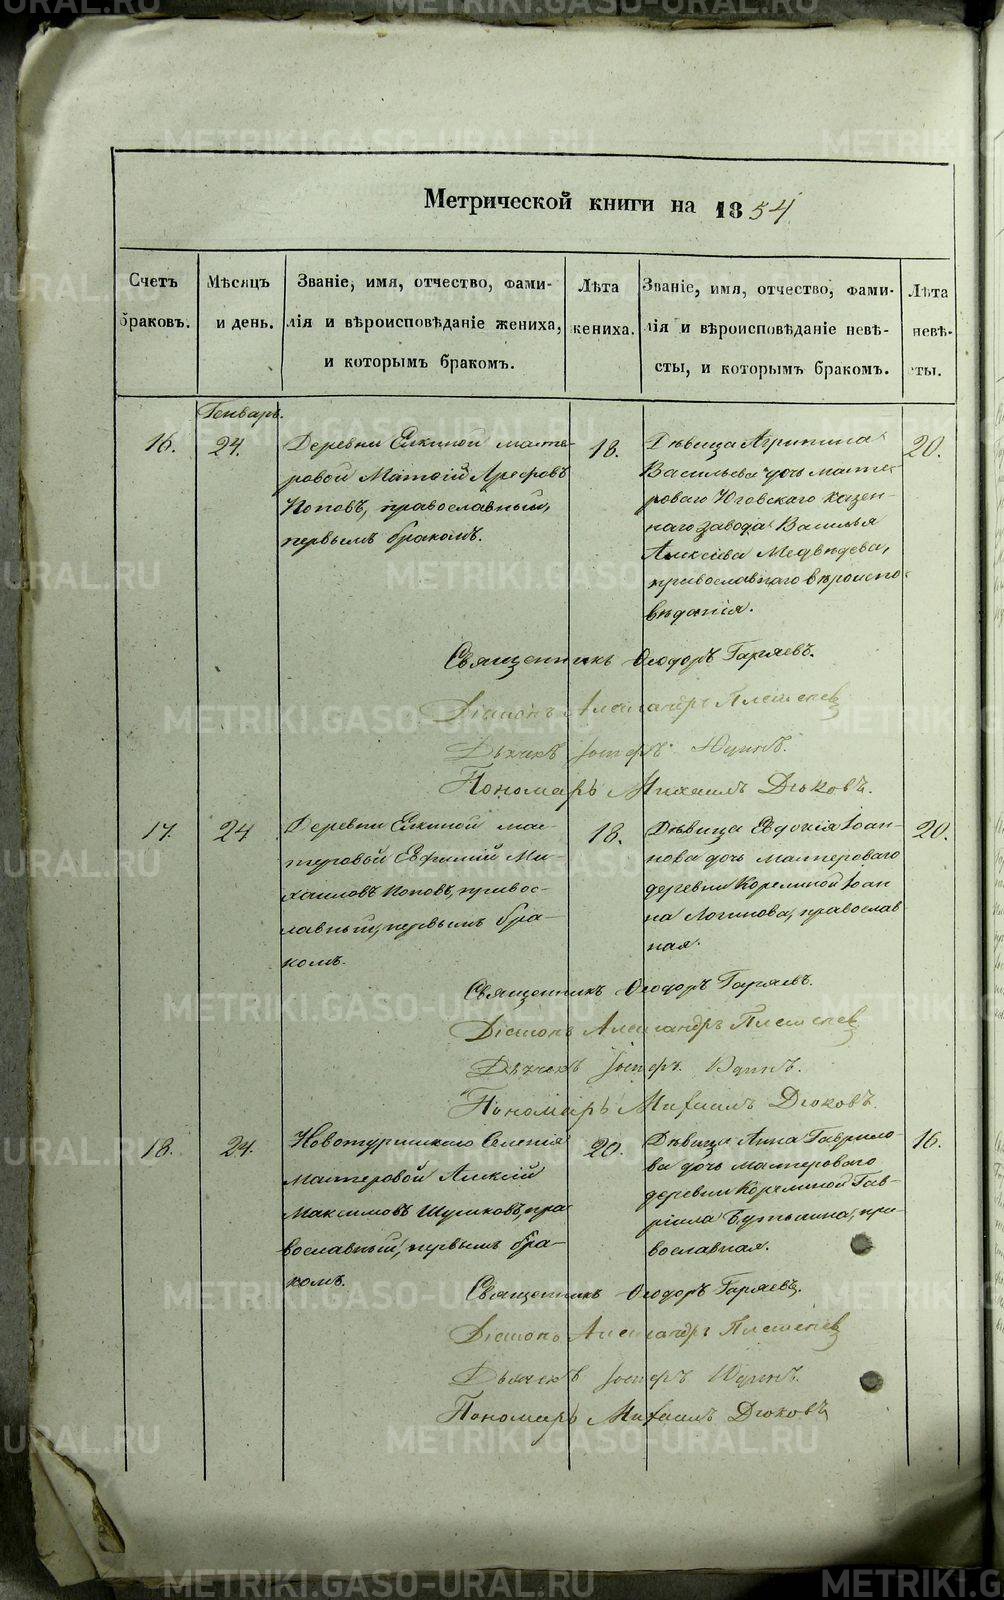 Метрической книги на 1854
Счетъ браковъ.
Мѣсяцъ и день.
Званіе, имя, отчество, фами-
лія и вѣроисповѣданіе жениха,
и которымъ бракомъ.
Лѣта жениха.
Званіе, имя, отчество, фами-
лія и вѣроисповѣданіе невѣ-
сты, и которымъ бракомъ.
Лѣта невѣ-
сты.
Генварь.
16.
24.
Деревни Елкиной масте-
ровой Матѳій Арефовъ
Поповъ, православный,
первымъ бракомъ.
18.
Дѣвица Агрипина
Васильева дочь масте-
роваго Юговскаго казен-
наго завода Василья
Алексѣева Медвѣдева,
православнаго вѣроиспо-
вѣданія.
20.
Священникъ Ѳеодоръ Гаряевъ.
Діаконъ Александръ
Дьячекъ Іосифъ
Пономарь Михаилъ Дюковъ.
17.
24
Деревни Елкиной мас-
теровой Евфимій Ми-
хаиловъ Поповъ, правос-
лавный, первымъ бра-
комъ.
18.
Дѣвица Евдокія Іоан-
нова дочь мастероваго
деревни Корелиной Іоан
на Логинова, православ
ная.
20.
Священникъ Ѳеодоръ Гаряевъ.
Діаконъ Александръ
Дьячекъ Іосифъ
Пономарь Михаилъ Дюковъ.
18.
24.
Селенія
мастеровой Алексій
Максимовъ пра
вославный, первымъ бра-
комъ.
20.
Дѣвица Анна Гаврило-
ва дочь мастероваго
деревни Корелиной Гав-
ріила пра-
вославная.
16.
Священникъ Ѳеодоръ Гаряевъ.
Діаконъ Александръ
Дьячекъ Іосифъ
Пономарь Михаилъ Дюковъ
METRIKI.GASO-URAL.RU